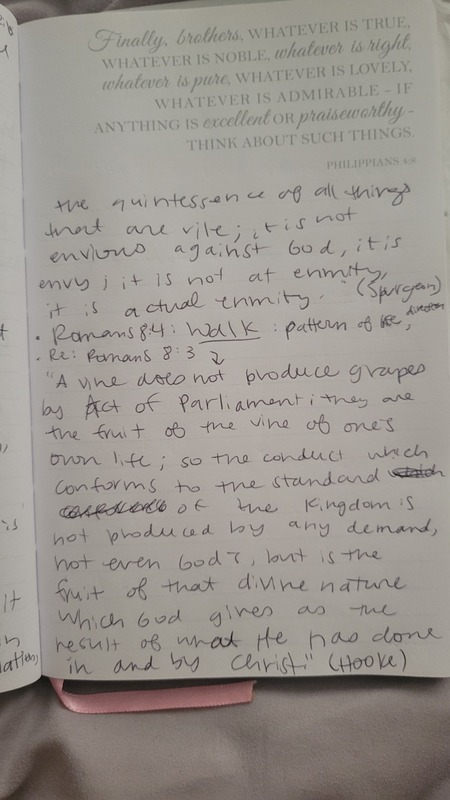 Finally, brothers, WHATEVER IS TRUE,
WHATEVER IS NOBLE, whatever is right,
whatever is pure, WHATEVER IS LOVELY,
WHATEVER IS ADMIRABLE - IF
ANYTHING IS excellent OR praiseworthy -
THINK ABOUT SUCH THINGS.
PHILIPPIANS 4:8
the quintessence of all things
that are vile; it is not
envious against God, it is
envy; it is not at enmity,
it is actual enmity." (Spurgeon)
• Romans 8:4: walk: pattern of life, direction
• Re: Romans 8:3 ↓
"A vine does not produce grapes
by Act of Parliament; they are
the fruit of the vine of one's
own life; so the conduct which
conforms to the standard
of the Kingdom is
not produced by any demand,
not even God's, but is the
fruit of that divine nature
which God gives as the
result of what He has done
in and by Christ" (Hooke)
is
it